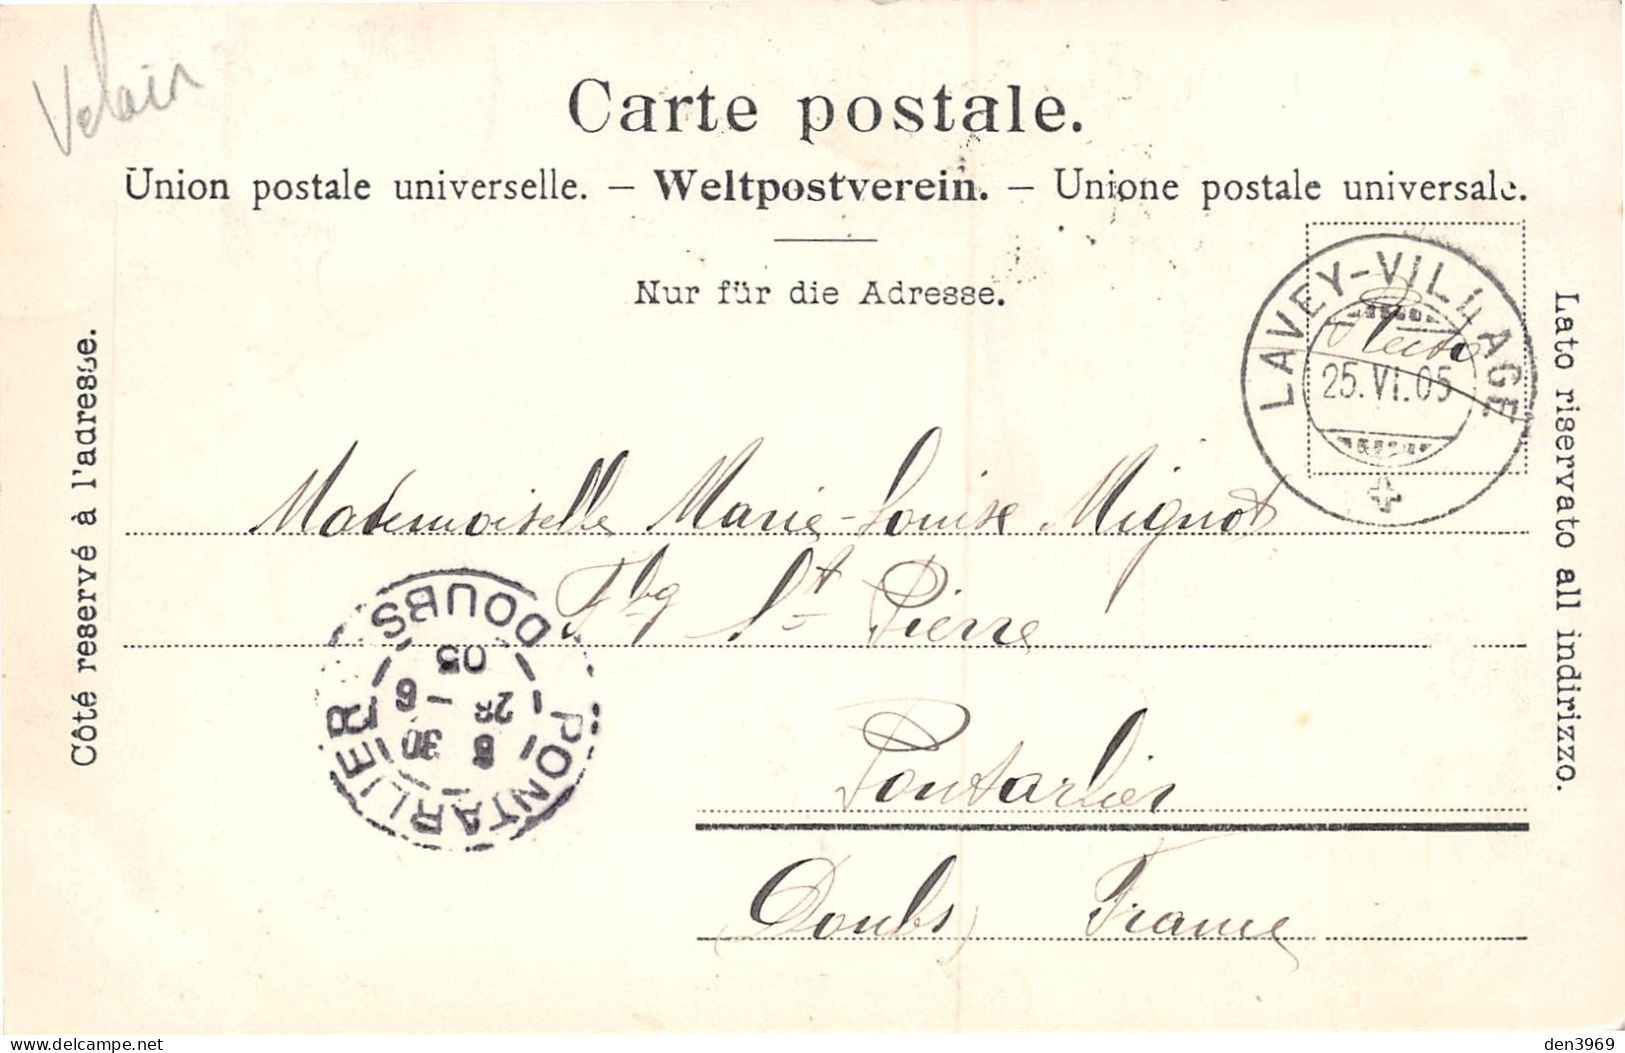 Velain
Carte postale.
Union postale universelle. – Weltpostverein. – Unione postale universale.
Nur für die Adresse.
Côté reservé à l'adresse.
Lato riservato all indirizzo.
LAVEY-VILLAGE
25.VI.05
Mademoiselle Marie-Louise Mignot
Fbg St Pierre
Pontarlier
(Doubs) France
PONTARLIER
8 30
28 - 6
05
DOUBS
Delcampe.net
den3969